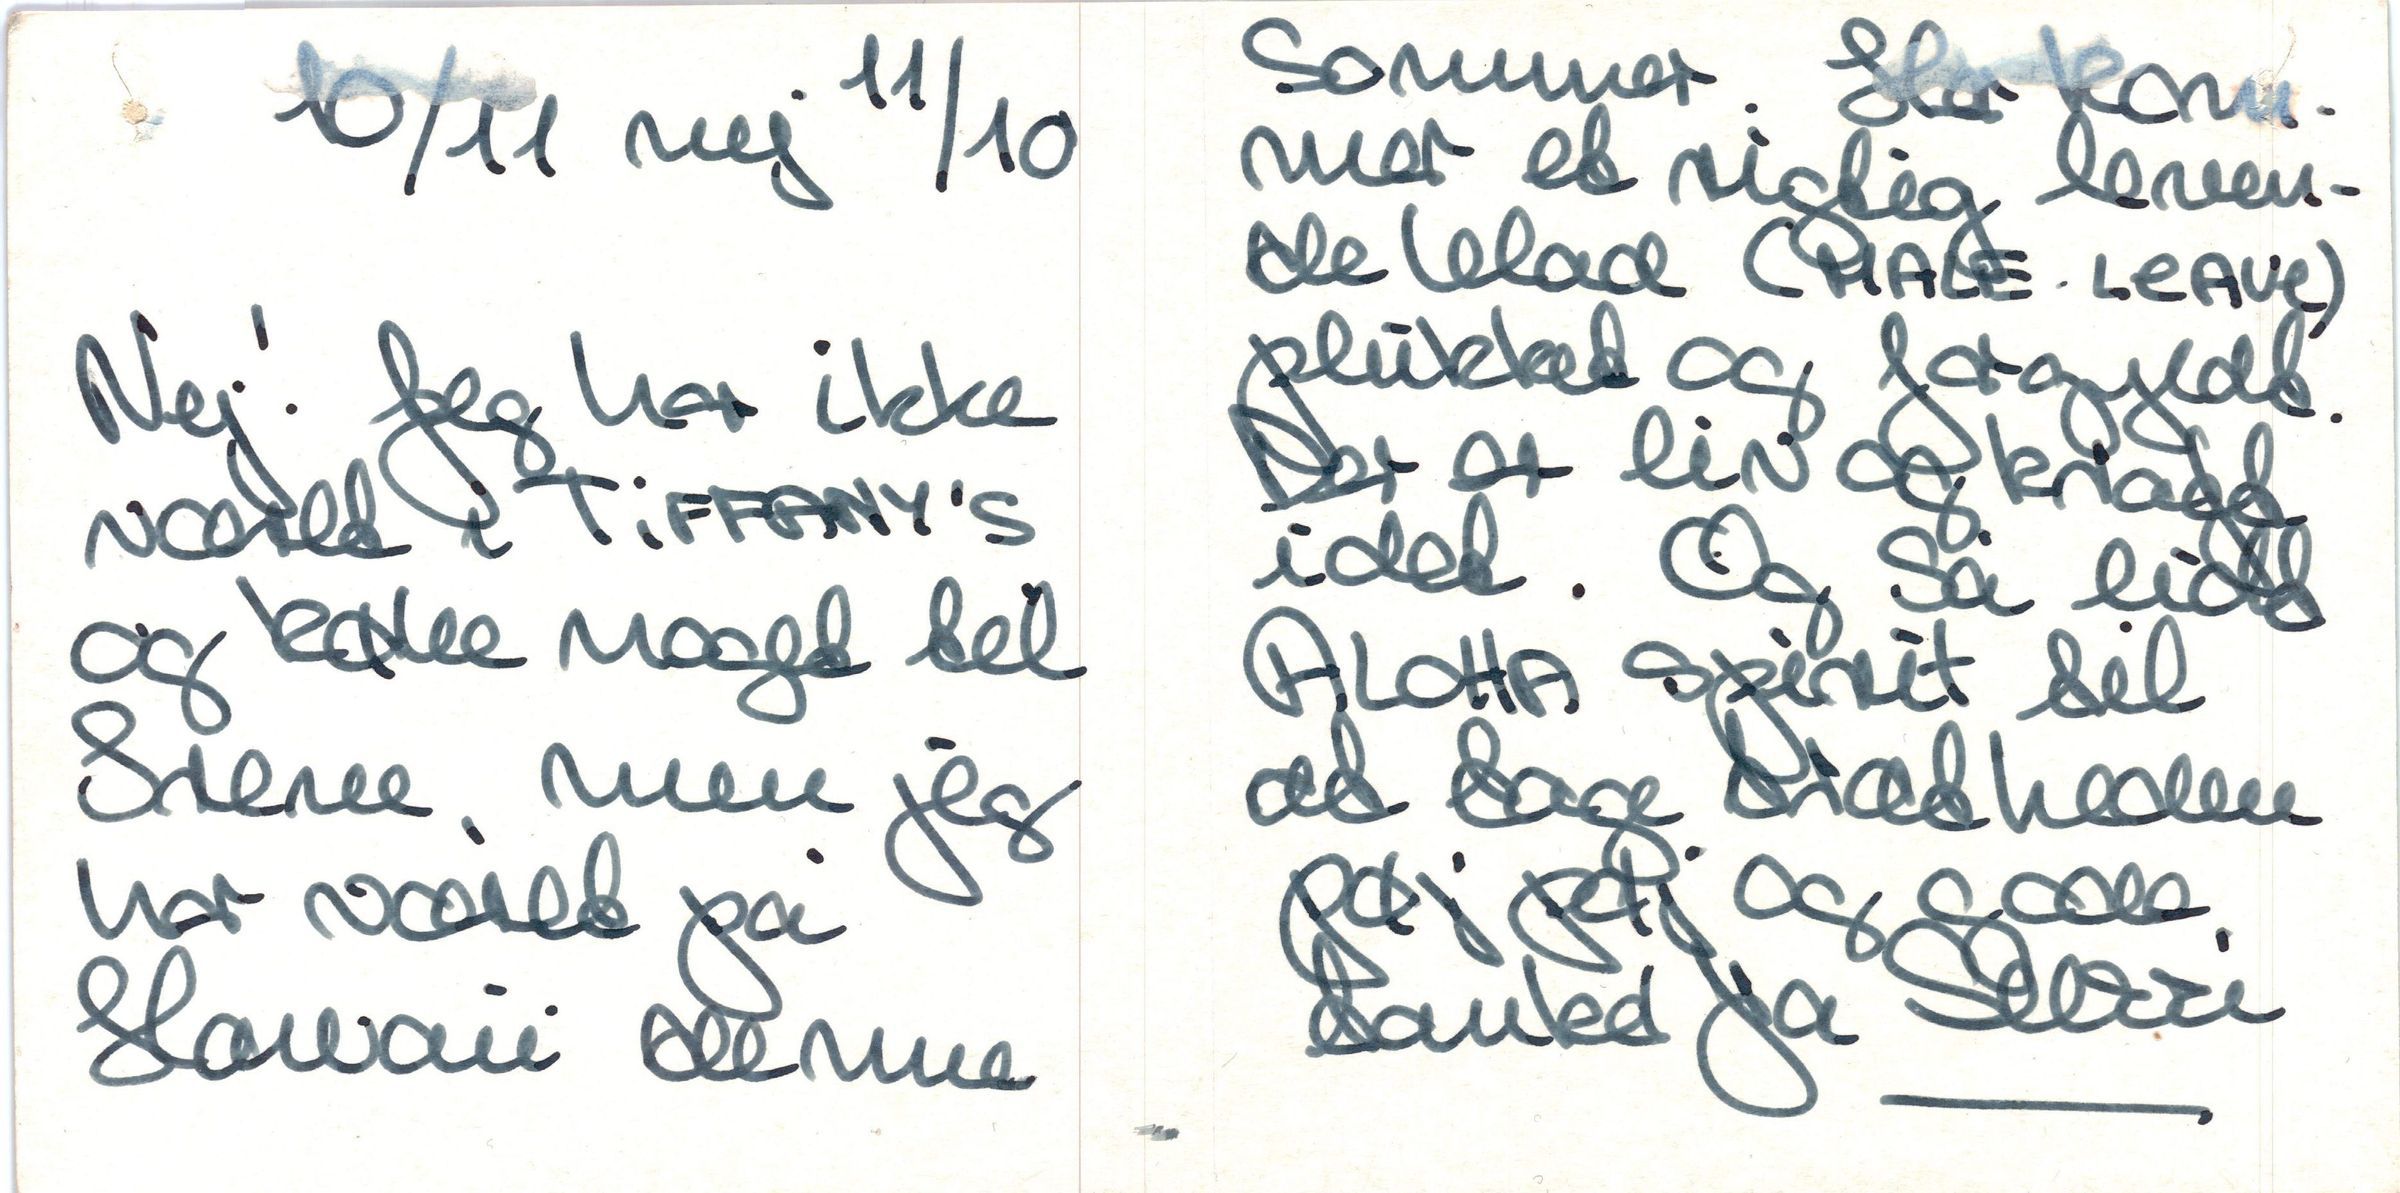 10/11 nej 11/10
Nej! Jeg har ikke
været i TiFFANY'S
og købe noget til
Irene, men jeg
har været på
Hawaii denne
Sommer. Her kom-
mer et rigtig leven-
de blad (MALE-LEAVE)
plukket og forgyldt.
Der er liv og krads
i det. Og så lidt
ALOHA spirit til
at tage trætheden
på og gode
tanker fra